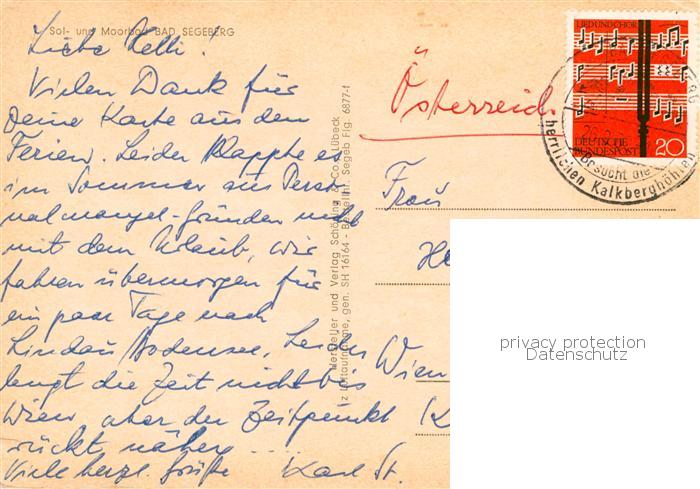 Sol- und Moorbad BAD SEGEBERG
Liebe Nelli!
Vielen Dank für
Deine Karte aus den
Ferien. Leider klappte es
im Sommer aus Perso-
nalmangel-gründen nicht
mit dem Urlaub, wir
fahren übermorgen für
ein paar Tage nach
Lindau/Bodensee. Leider
langt die Zeit nicht bis
Wien, aber der Zeitpunkt
rückt näher ....
Viele herzl. Grüße Karl St.
Hersteller und Verlag Schöning & Co., Lübeck
z Luftaufnahme, gen. SH 16164 - Bestellnr. Segeb Flg. 6877-f
Österreich
Frau
He
Wien
privacy protection
Datenschutz
LIED UND CHOR
DEUTSCHE
BUNDESPOST
20
Besucht die
herrlichen Kalkberghöhlen